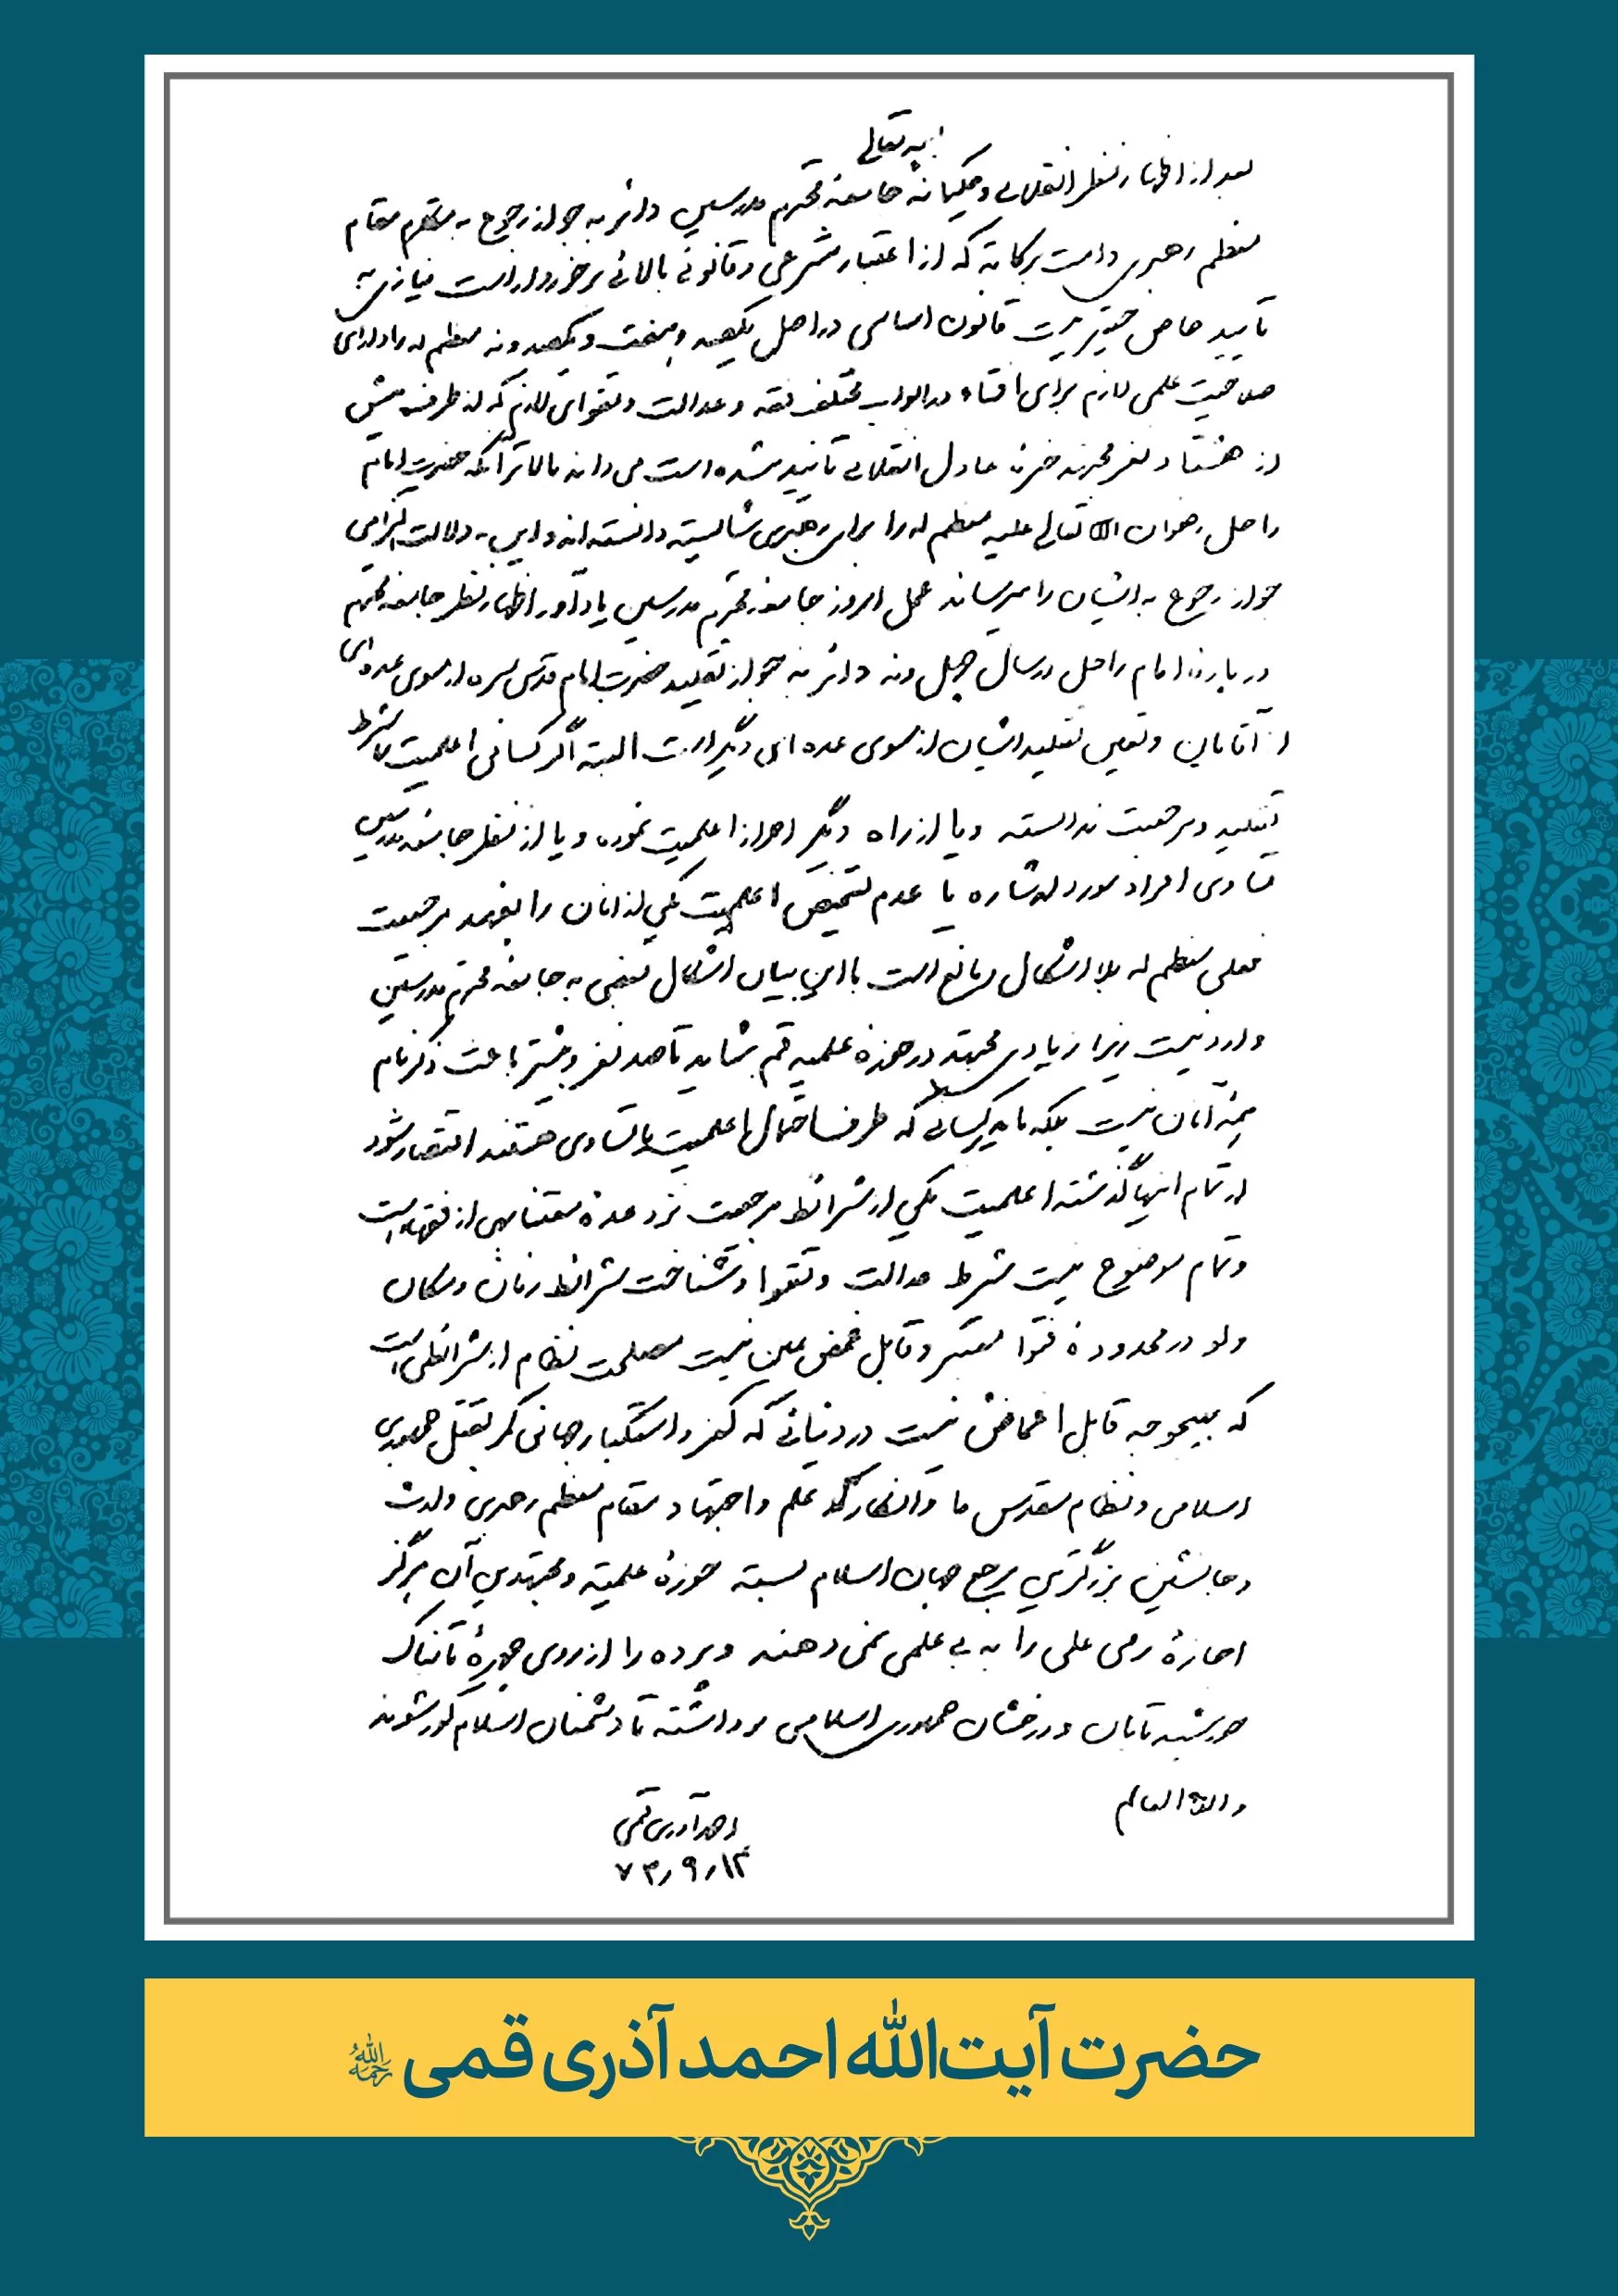 بسمه تعالی
بعد از اظهار نظر انقلابی و حکیمانه جامعه محترم مدرسین دائر به جواز رجوع به مقام
معظم رهبری دامت برکاته که از اعتبار شرعی و قانونی بالائی برخوردار است نیازی به
تأیید خاص حقیر نیست قانون اساسی در اصل یکصد و هفت و یکصد و نه معظم له را دارای
صلاحیت علمی لازم برای افتاء در ابواب مختلف فقه و عدالت و تقوای لازم که از طرف بیش
از هشتاد نفر مجتهد خبره عادل انقلابی تأیید شده است می‌داند بالاتر آنکه حضرت امام
راحل رضوان الله تعالی علیه معظم له را برای رهبری شایسته دانسته‌اند و این به دلالت التزامی
جواز رجوع به ایشان را میرساند عمل امروز جامعه محترم مدرسین یادآور اظهار نظر جامعه محترم
درباره امام راحل در سال چهل و نه دائر به جواز تقلید حضرت امام قدس سره از سوی عده‌ای
از آقایان و تعین تقلید ایشان از سوی عده‌ای دیگر است البته اگر کسانی اعلمیت را شرط
تقلید و مرجعیت ندانسته و یا از راه دیگر احراز اعلمیت نموده و یا از نظر جامعه مدرسین
تساوی افراد مورد اشاره یا عدم تشخیص اعلمیت یکی از آنان را بفهمد مرجعیت
فعلی معظم له بلا اشکال و مانع است با این بیان اشکال بعضی به جامعه محترم مدرسین
وارد نیست زیرا زیادی مجتهد در حوزه علمیه قم شاید تا صد نفر و بیشتر باعث ذکر نام
همه آنان نیست بلکه باید بکسانی که طرف احتمال اعلمیت یا تساوی هستند اقتصار شود
از تمام اینها گذشته اعلمیت یکی از شرائط مرجعیت نزد عده معتنابهی از فقهاء است
و تمام موضوع نیست شرط عدالت و تقوا و شناخت شرائط زمان و مکان
ولو در محدوده فتوا معتبر و قابل غمض عین نیست مصلحت نظام از شرائطی است
که بهیچوجه قابل اغماض نیست در دنیائی که کفر و استکبار جهانی کمر بقتل جمهوری
اسلامی و نظام مقدس ما و انکار علم و اجتهاد مقام معظم رهبری وارث
و جانشین بزرگترین مرجع جهان اسلام بسته حوزه علمیه و مجتهدین آن هرگز
اجازه رمی علی را به بی علمی نمی‌دهند و پرده را از روی چهره تابناک
خورشید تابان و درخشان جمهوری اسلامی برداشته تا دشمنان اسلام کور شوند
والله العالم
احمد آذری قمی
۷۳/۹/۱۲
حضرت آیت‌الله احمد آذری قمی رحمه‌الله